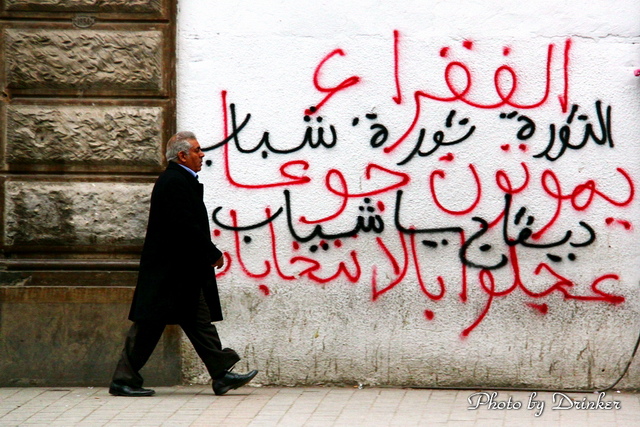 الفقراء
الثورة ثورة شباب
يموتون جوعا
ديقاج يا شياب
عجلوا بالانتخابات
Photo by Drinker